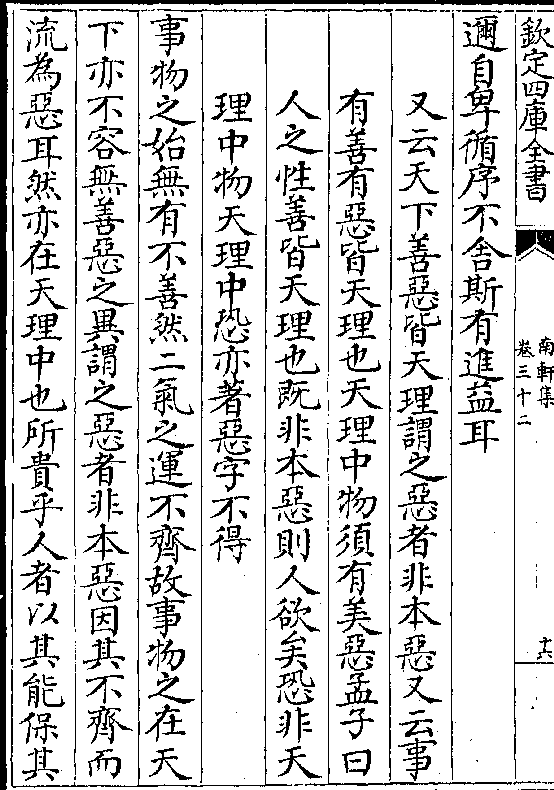 欽定四庫全書
南軒集
卷三十二
十六
邇自卑循序不舍斯有進益耳
又云天下善惡皆天理謂之惡者非本惡又云事
有善有惡皆天理也天理中物須有美惡孟子曰
人之性善皆天理也既非本惡則人欲矣恐非天
理中物天理中恐亦著惡字不得
事物之始無有不善然二氣之運不齊故事物之在天
下亦不容無善惡之異謂之惡者非本惡因其不齊而
流為惡耳然亦在天理中也所貴乎人者以其能保其